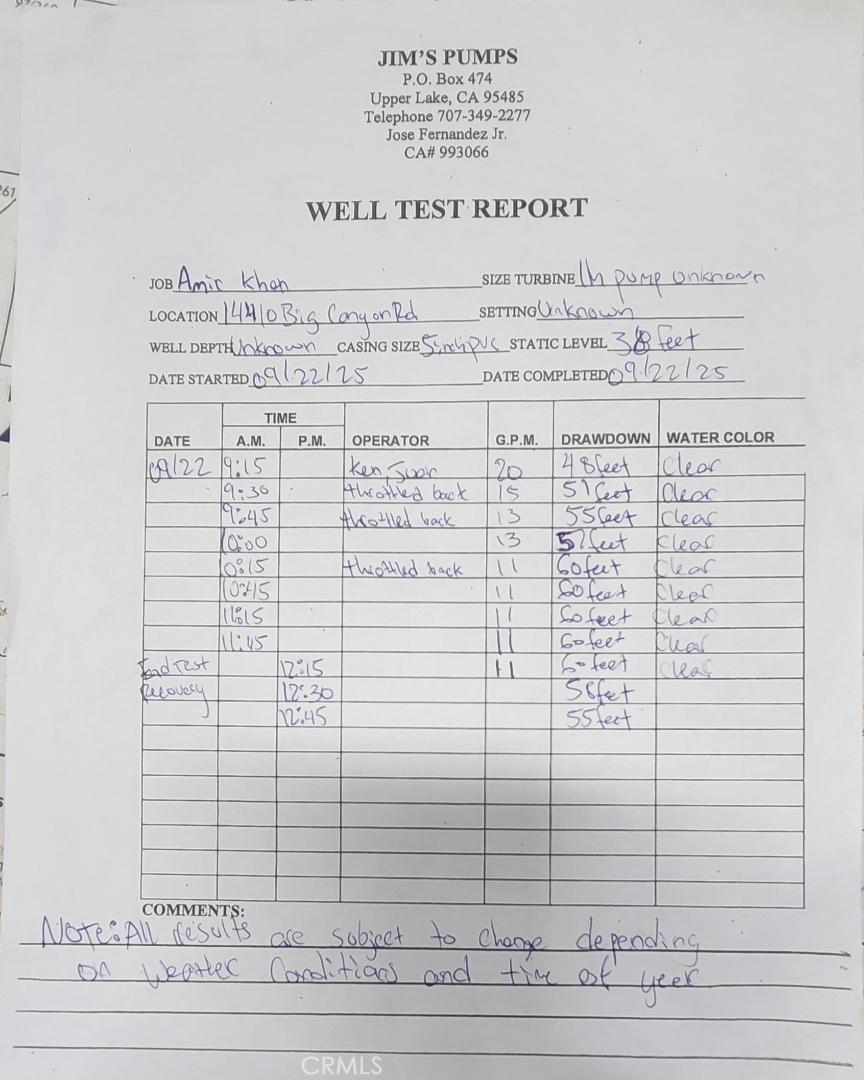 JIM'S PUMPS
P.O. Box 474
Upper Lake, CA 95485
Telephone 707-349-2277
Jose Fernandez Jr.
CA# 993066
WELL TEST REPORT
JOB Amir Khan SIZE TURBINE 1h pump unknown
LOCATION 14410 Big Canyon Rd SETTING Unknown
WELL DEPTH Unknown CASING SIZE 5inch pvc STATIC LEVEL 38 feet
DATE STARTED 09/22/25 DATE COMPLETED 09/22/25
TIME
DATE A.M. P.M. OPERATOR G.P.M. DRAWDOWN WATER COLOR
09/22 9:15 Ken, Juan 20 48feet Clear
9:30 throttled back 15 51feet Clear
9:45 throttled back 13 55feet Clear
10:00 13 57feet Clear
10:15 throttled back 11 60feet Clear
10:45 11 60feet Clear
11:15 11 60feet Clear
11:45 11 60feet Clear
End Test 12:15 11 60feet Clear
Recovery 12:30 feet
12:45 55feet
COMMENTS:
Note: All results are subject to change depending
on weather Conditions and time of year
CRMLS